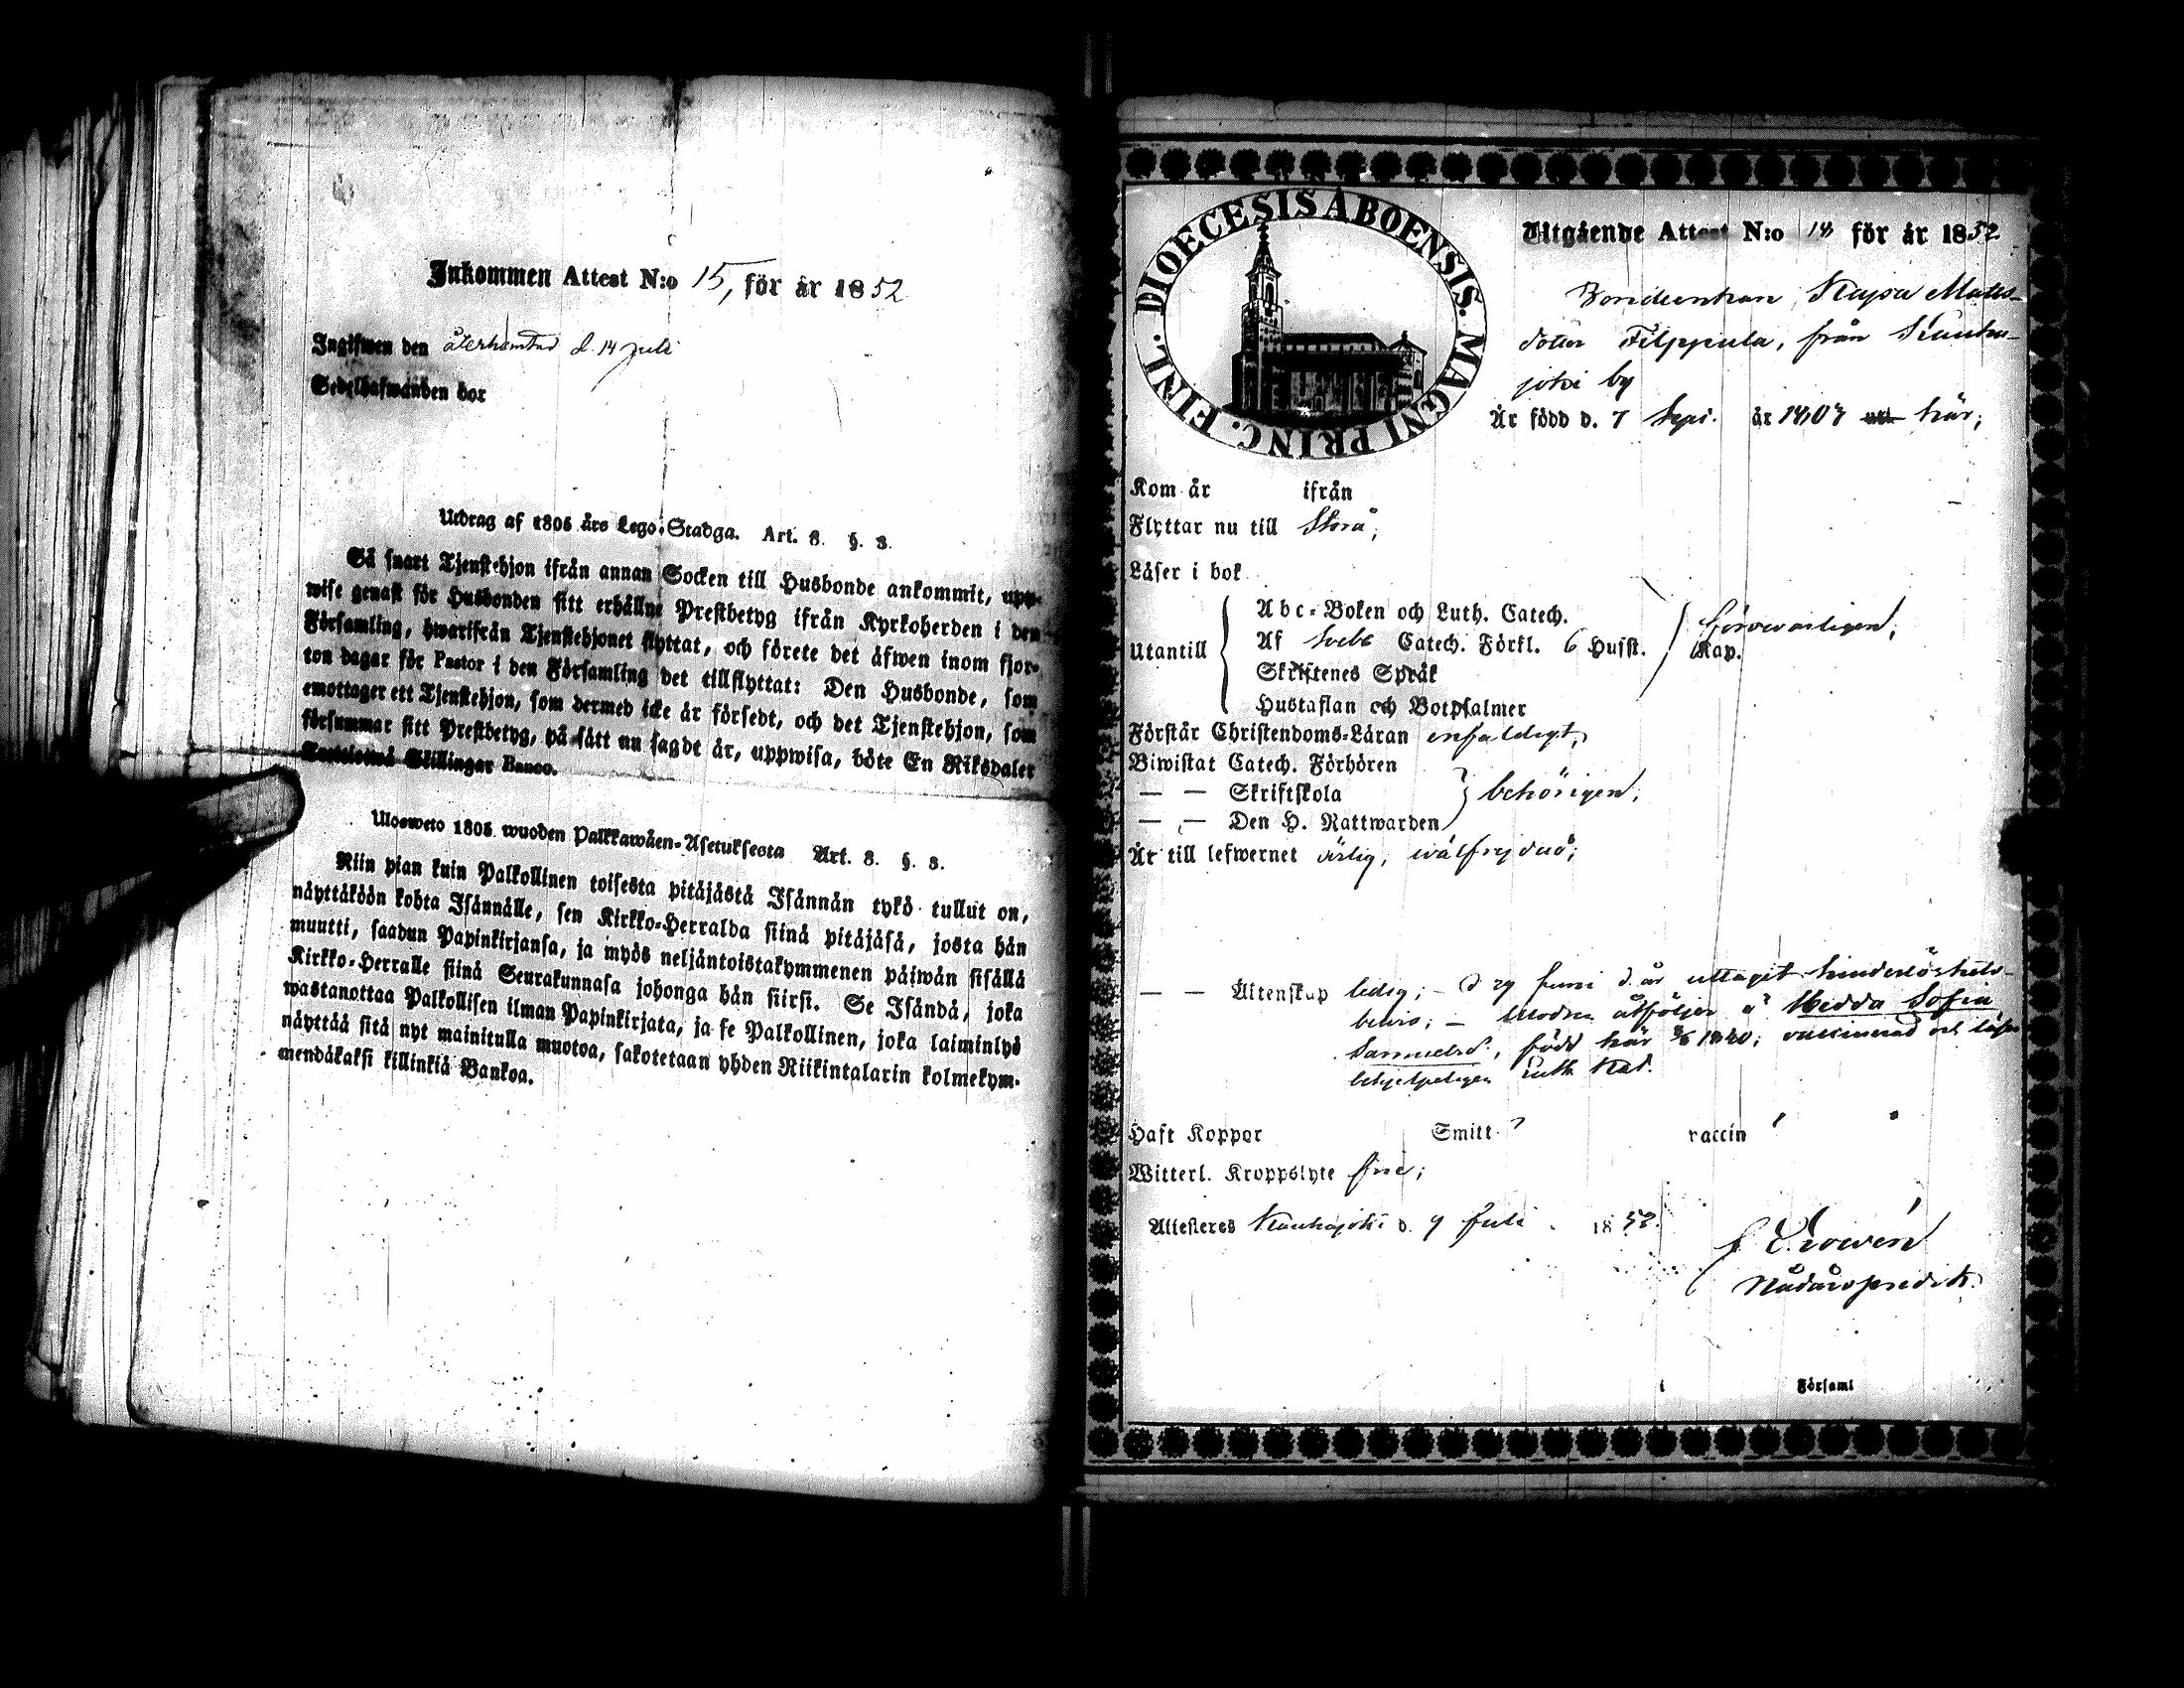 Inkommen Attest N:o 15, för år 1852
Ingifwen den återhämtad d. 14 Juli
Sedelhafwanden bor
Utdrag af 1805 års Lego-Stadga. Art. 8. §. 3.
Så snart Tjenstehjon ifrån annan Socken till Husbonde ankommit, upp-
wise genast för Husbonden sitt erhållne Prestbetyg ifrån Kyrkoherden i den
Församling, hwarifrån Tjenstehjonet flyttat, och förete det äfwen inom fjor-
ton dagar för Pastor i den Församling det tillflyttat: Den Husbonde, som
emottager ett Tjenstehjon, som dermed icke är försedt, och det Tjenstehjon, som
försummar sitt Prestbetyg, på sätt nu sagdt är, uppwisa, böte En Riksdaler
Skillingar Banco.
Ulosweto 1805 wuoden Palkkawäen-Asetuksesta Art. 8. §. 3.
Niin pian kuin Palkollinen toisesta pitäjästä Isännän tykö tullut on,
näyttäköön kohta Isännälle, sen Kirkko-Herralda siinä pitäjäsä, josta hän
muutti, saadun Papinkirjansa, ja myös neljäntoistakymmenen päiwän sisällä
Kirkko-Herralle siinä Seurakunnasa johonga hän siirsi. Se Isändä, joka
wastanottaa Palkollisen ilman Papinkirjata, ja se Palkollinen, joka laiminlyö
näyttää sitä nyt mainitulla muotoa, sakotetaan yhden Riikintalarin kolmekym-
mendäkaksi killinkiä Bankoa.
DIOECESIS ABOENSIS. MAGNI PRINC. FINL.
Utgående Attest N:o 18 för år 1852
Bondeenkan Kajsa Matts-
dotter Filppula, från Kauha-
joki by
Är född d. 7 Sept. år 1803 här;
Kom år ifrån
Flyttar nu till Storå;
Läser i bok
Utantill
Abc-Boken och Luth. Catech.
Af Sveb Catech. Förkl. 6 Husst. Kap.
försvarligen;
Skriftenes Språk
Hustaflan och Botpsalmer
Förstår Christendoms-Läran enfaldigt;
Biwistat Catech. Förhören
— — Skriftskola behörigen;
— — Den H. Nattwarden
Är till lefwernet ärlig, wälfrejdad;
— — Äktenskap ledig; – d 29 Juni d. år uttagit hinderlöshets-
bevis; – Modren åtföljer Hedda Sofia
Samuelsd., född här 1840; vaccinerad och läser
behjelpligen Luth Kat.
Haft Koppor Smitt. vaccin
Witterl. Kroppslyte fri;
Attesteres Kauhajoki d. 9 Juli 1852.
Nådårspredik.
i Församl